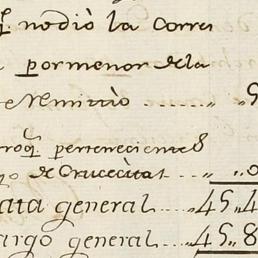 q.l no dió la Corres
por menor de la
e Remitió ..... „ .. 9
roq.l perteneciente
go de Crucecitat .. „ .. 0
ata general .... „ 45 „ 4
argo general .... „ 45 „ 8